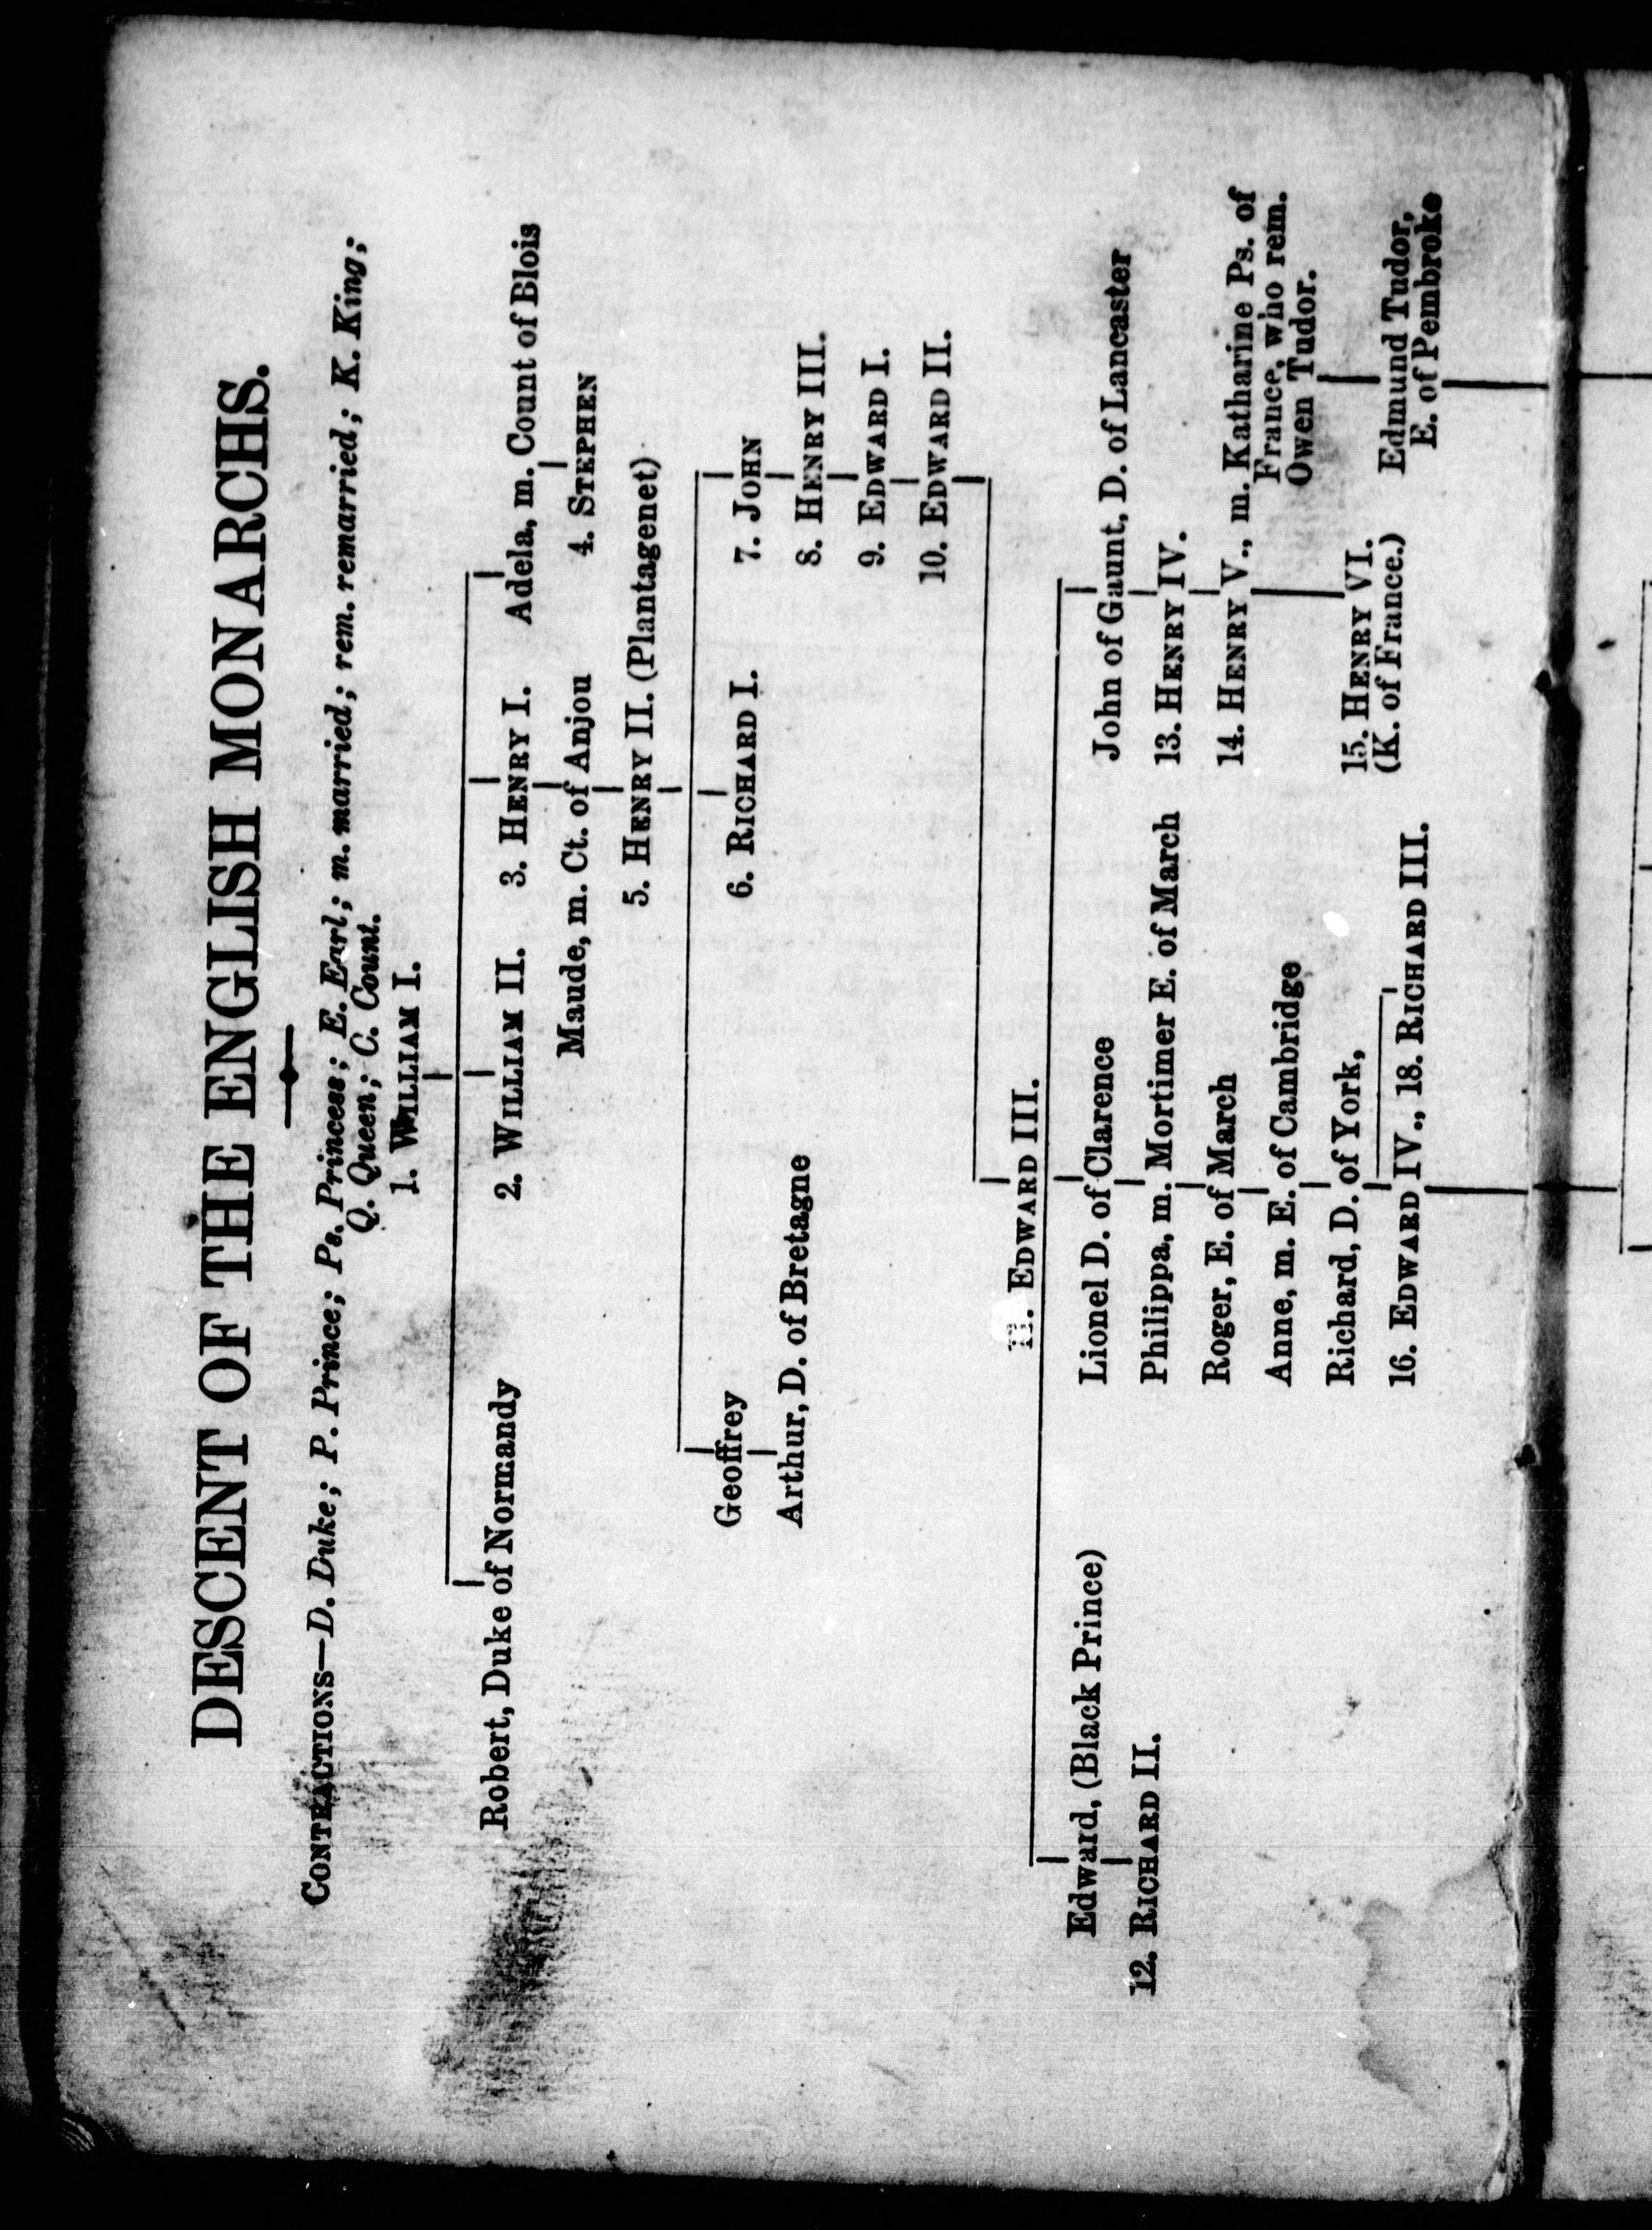 DESCENT OF THE ENGLISH MONARCHS.
CONTRACTIONS—D. Duke; P. Prince; Ps. Princess; E. Earl; m. married; rem. remarried; K. King;
Q. Queen; C. Count.
1. WILLIAM I.
Robert, Duke of Normandy 2. WILLIAM II. 3. HENRY I. Adela, m. Count of Blois
Maude, m. Ct. of Anjou 4. STEPHEN
5. HENRY II. (Plantagenet)
Geoffrey 6. RICHARD I. 7. JOHN
Arthur, D. of Bretagne 8. HENRY III.
9. EDWARD I.
10. EDWARD II.
11. EDWARD III.
Edward, (Black Prince) Lionel D. of Clarence John of Gaunt, D. of Lancaster
12. RICHARD II. Philippa, m. Mortimer E. of March 13. HENRY IV.
Roger, E. of March 14. HENRY V., m. Katharine Ps. of
Anne, m. E. of Cambridge France, who rem.
Owen Tudor.
Richard, D. of York, 15. HENRY VI. Edmund Tudor,
(K. of France.) E. of Pembroke
16. EDWARD IV., 18. RICHARD III.